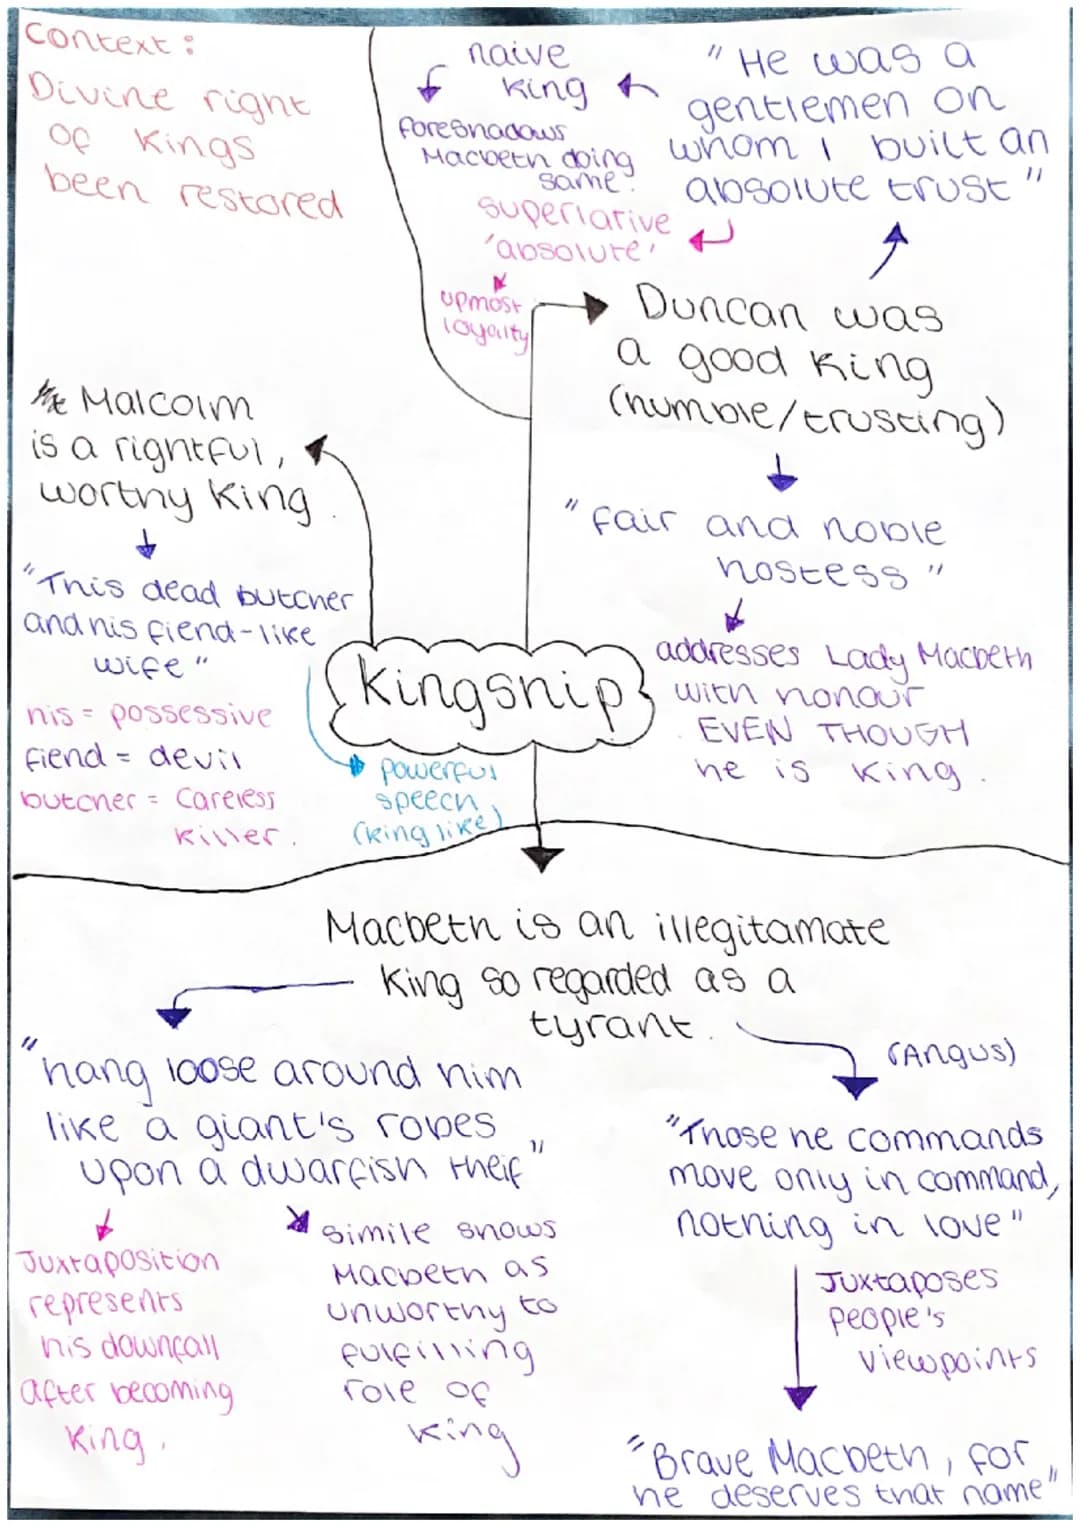 Context:
Divine right
of Kings
been restored
naive
king
foreshadows
Macbeth doing
same.
"He was a
gentlemen on
whom I built an
absolute trust"
superlative
'absolute'
upmost
loyalty
Duncan was
a good king
(humble/trusting)
"fair and noble
hostess"
addresses Lady Macbeth
with honour
EVEN THOUGH
he is king.
Malcolm
is a rightful,
worthy king.
"This dead butcher
and his fiend-like
wife"
his = possessive
fiend = devil
butcher = careless
killer.
powerful
speech
(king like)
Kingship
Macbeth is an illegitamate
king so regarded as a
tyrant.
"hang loose around him
like a giant's robes
upon a dwarfish theif"
Juxtaposition
represents
his downfall
after becoming
king.
simile shows
Macbeth as
unworthy to
fulfilling
role of
king
(Angus)
"Those he commands
move only in command,
nothing in love"
Juxtaposes
people's
viewpoints
"Brave Macbeth, for
he deserves that name"